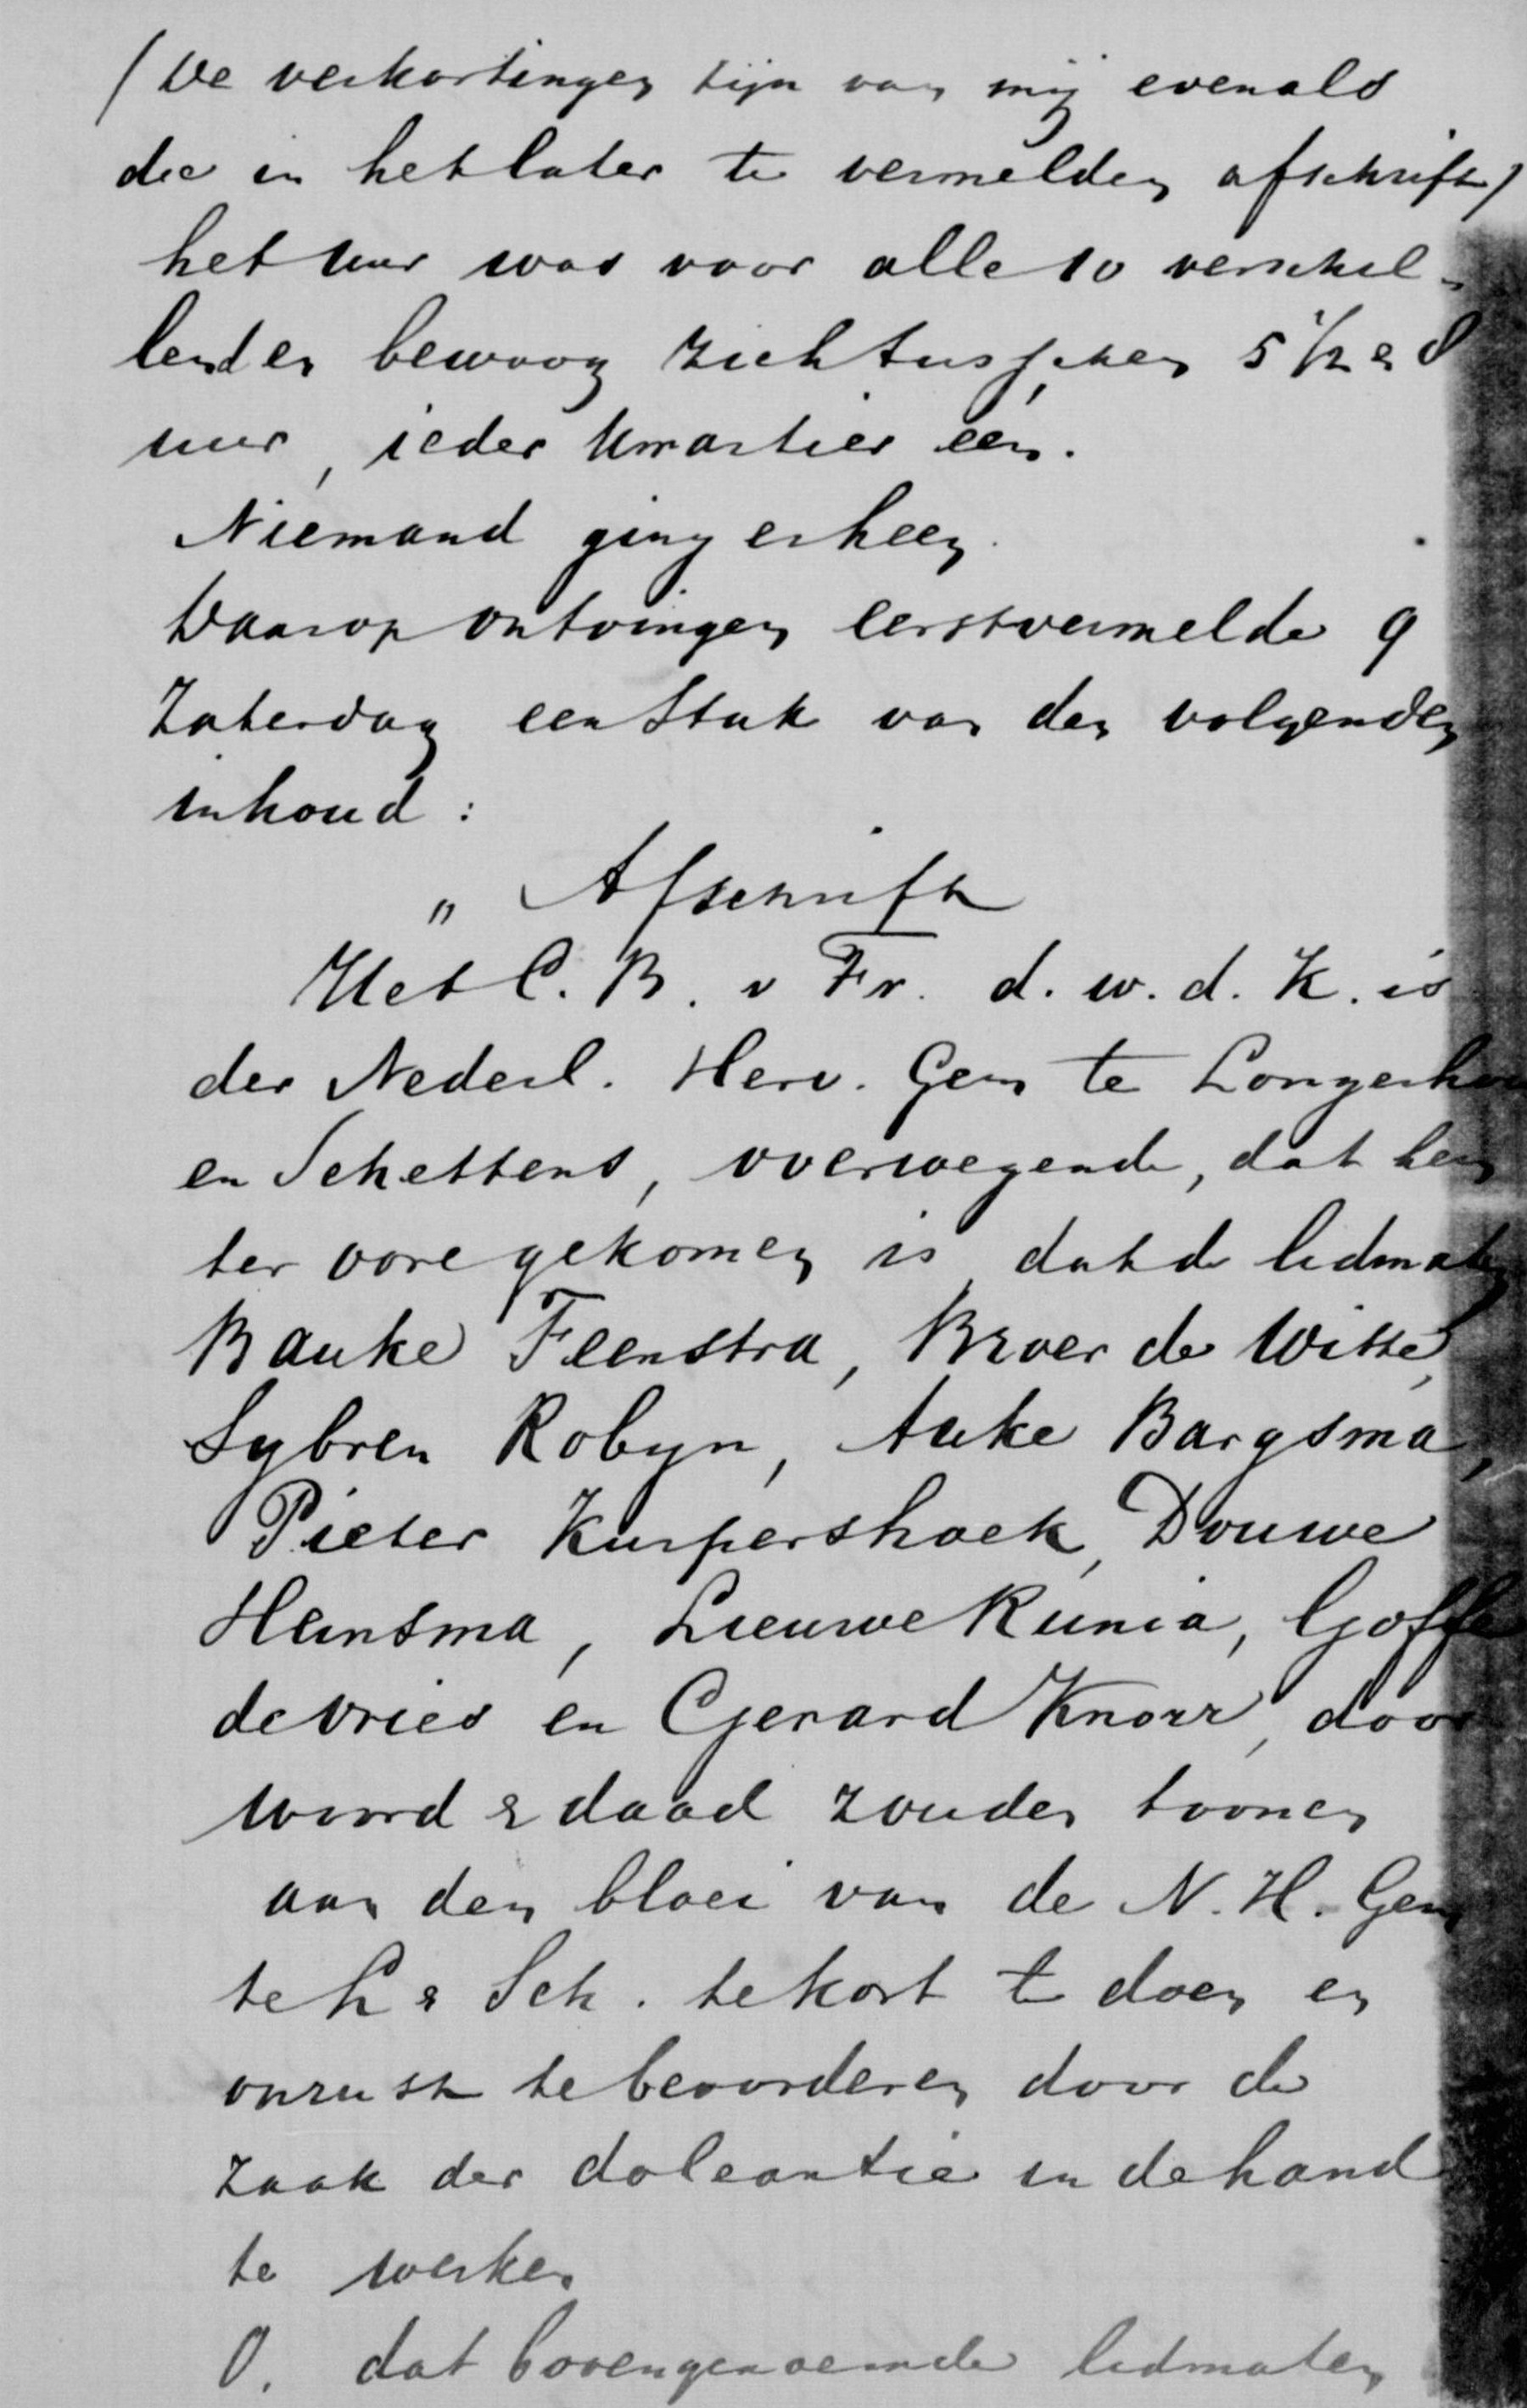 (De verkortingen zijn van mij evenals
die in het later te vermelden afschrift)
het uur was voor alle 10 verschil-
lend en bewoog zich tusschen 5 1/2 & 8
uur, ieder kwartier één.
Niemand ging erheen.
Daarop ontvingen eerstvermelde 9
Zaterdag een stuk van den volgenden
inhoud:
„ Afschrift
Het C. B. v Fr. d. w. d. K. is
der Nederl. Herv. Gem te Longerhou
en Schettens, overwegende, dat hem
ter oore gekomen is dat de lidmaten
Bauke Feenstra, Broer de Witte,
Sybren Robyn, Auke Bargsma,
Pieter Kuipershoek, Douwe
Heinsma, Lieuwe Kunia, Goffe
de Vries en Gerard Knorr, door
woord & daad zouden toonen
aan den bloei van de N. H. Gem
te L & Sch. te kort te doen en
onrust te bevorderen door de
zaak der doleantie in de hand
te werken
O. dat bovengenoemde lidmaten